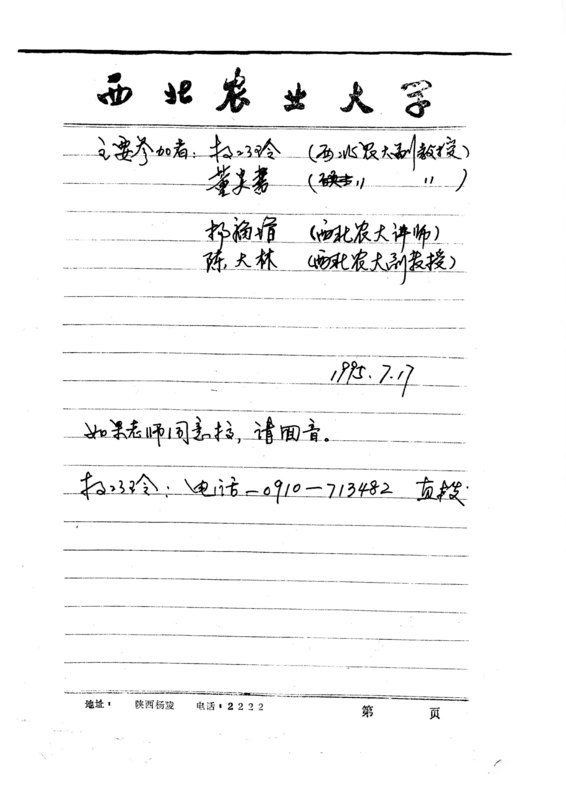 西北农业大学
主要参加者： 玲 （西北农大副教授）
董 （ 〃 〃 ）
杨 娟 （西北农大讲师）
陈大林 （西北农大副教授）
1995.7.17
如果老师同意 ，请回音。
玲：电话—0910—713482 直拨
地址： 陕西杨陵 电话：2222 第 页